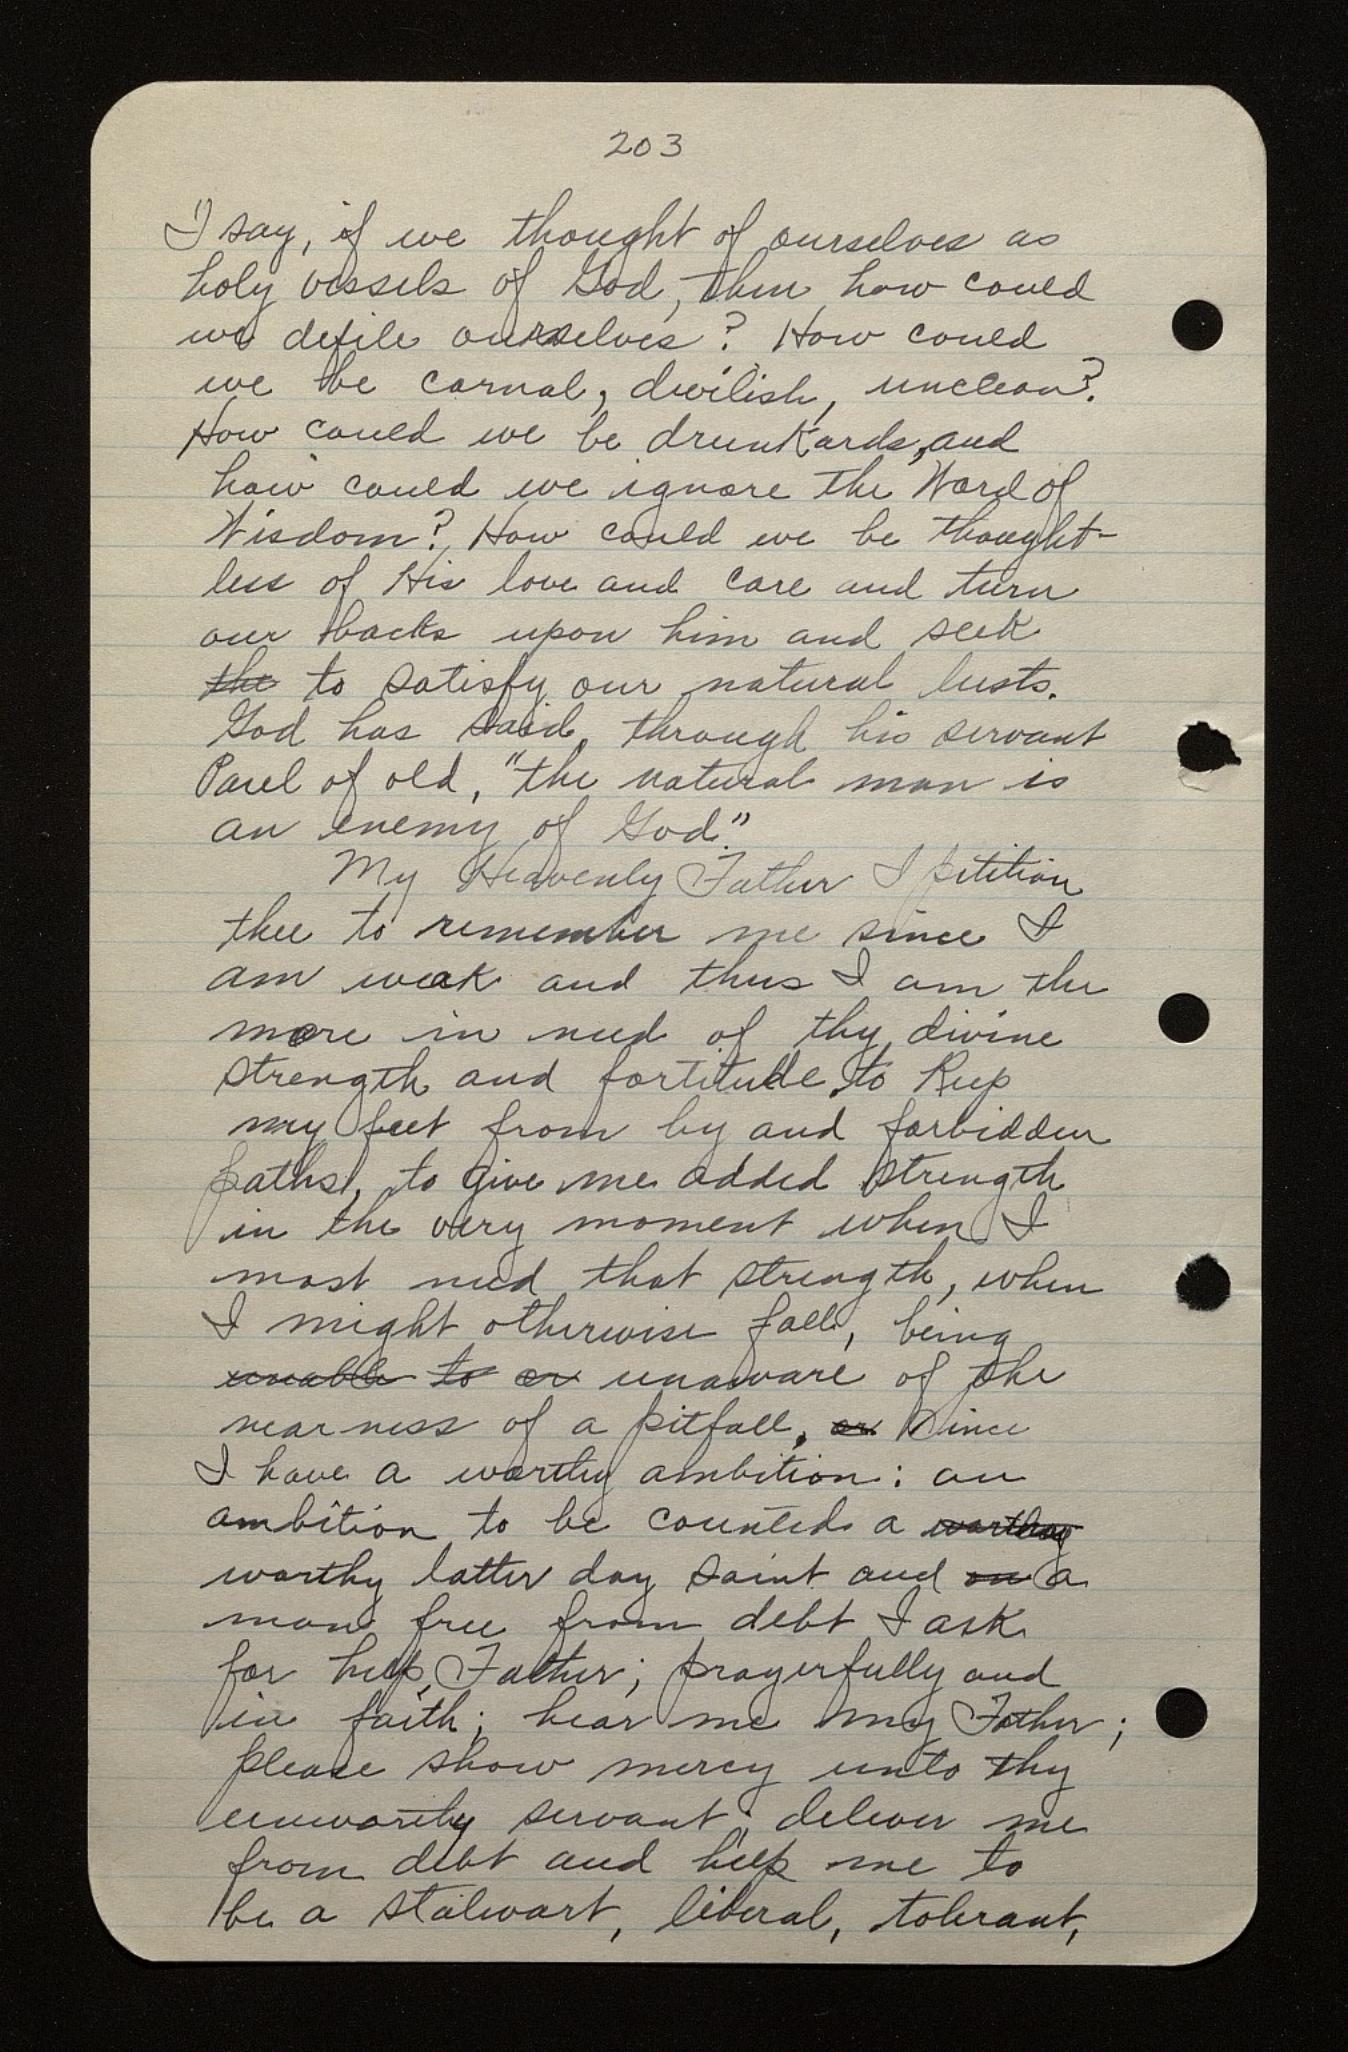 203
I say, if we thought of ourselves as
holy vessels of God, then how could
we defile ourselves? How could
we be carnal, devilish, unclean?
How could we be drunkards, and
how could we ignore the Word of
Wisdom? How could we be thought-
less of His love and care and turn
our backs upon him and seek
the to satisfy our natural lusts.
God has said, through his servant
Paul of old, "the natural man is
an enemy of God."
My Heavenly Father I petition
thee to remember me since I
am weak and thus I am the
more in need of thy divine
strength and fortitude, to keep
my feet from by and forbidden
paths, to give me added strength
in the very moment when I
most need that strength, when
I might otherwise fall, being
unable to or unaware of the
nearness of a pitfall, or Since
I have a worthy ambition: an
ambition to be counted a worthy
worthy latter day saint and an a
man free from debt I ask
for help, Father; prayerfully and
in faith; hear me my Father;
please show mercy unto thy
unworthy servant; deliver me
from debt and help me to
be a stalwart, liberal, tolerant,